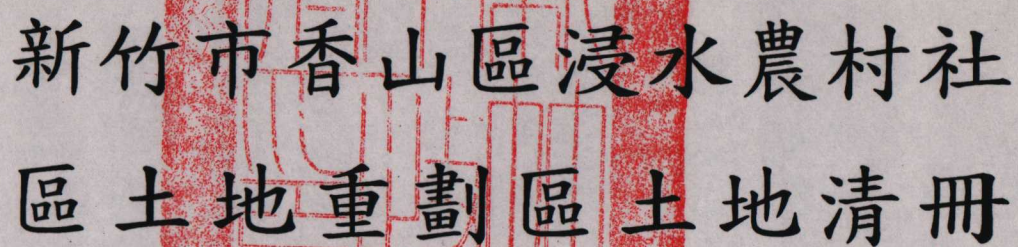 新竹市香山區浸水農村社
區土地重劃區土地清冊